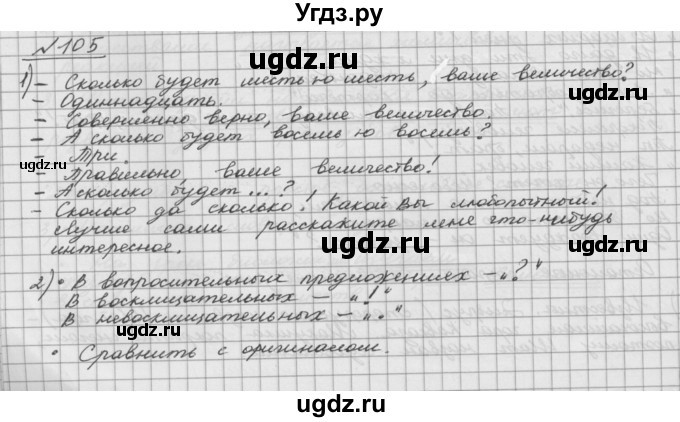 Угдз.ру
№105
1) – Сколько будет шестью шесть, ваше величество?
– Одиннадцать.
– Совершенно верно, ваше величество.
– А сколько будет восемью восемь?
– Три.
– Правильно, ваше величество!
– А сколько будет ...?
– Сколько да сколько! Какой вы любопытный!
Лучше сами расскажите мне что-нибудь
интересное.
2) • В вопросительных предложениях – „?“
В восклицательных – „!“
В невосклицательных – „.“
• Сравнить с оригиналом.
ugdz.ru
ugdz.ru
ugdz.ru
ugdz.ru
ugdz.ru
ugdz.ru
ugdz.ru
ugdz.ru
ugdz.ru
ugdz.ru
ugdz.ru